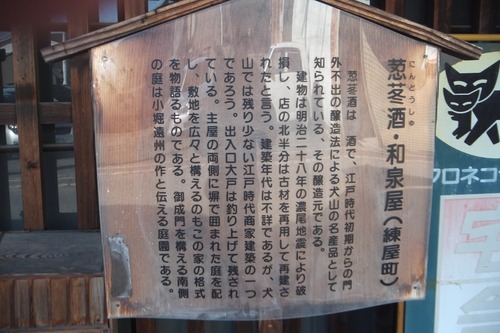 にんとうしゅ
荵苳酒・和泉屋(練屋町)
荵苳酒は 酒で、江戸時代初期からの門
外不出の醸造法による犬山の名産品として
知られている、その醸造元である。
建物は明治二十八年の濃尾地震により破
損し、店の北半分は古材を再用して再建さ
れたと言う。建築年代は不詳であるが、犬
山では残り少ない江戸時代商家建築の一つ
であろう。出入口大戸は釣り上げて残され
ている。主屋の両側に塀で囲まれた庭を配
し、敷地を広々と構えるのもこの家の格式
を物語るものである。御成門を構える南側
の庭は小堀遠州の作と伝える庭園である。
クロネコ